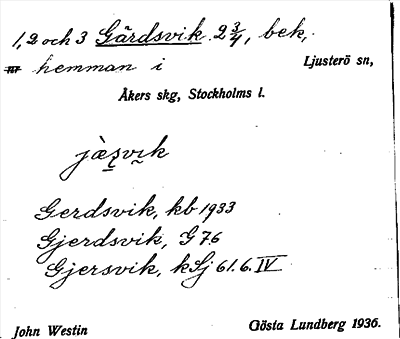 1, 2 och 3 Gärdsvik 2 3/4, bek,
hemman i Ljusterö sn,
Åkers skg, Stockholms l.
Gerdsvik, kb 1933
Gjerdsvik, G 76
Gjersvik, kSj 61.6.IV
John Westin Gösta Lundberg 1936.